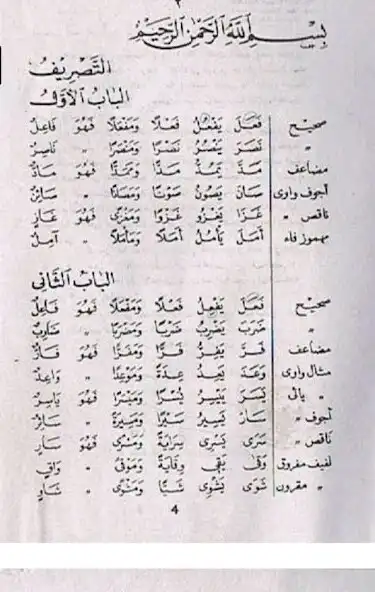 ٢
بِسْمِ اللهِ الرَّحْمٰنِ الرَّحِيْمِ
التَّصْرِيفُ
الْبَابُ الْأَوَّلُ
صحيح فَعَلَ يَفْعُلُ فَعْلًا وَمَفْعَلًا فَهُوَ فَاعِلٌ
» نَصَرَ يَنْصُرُ نَصْرًا وَمَنْصَرًا » نَاصِرٌ
مضاعف مَدَّ يَمُدُّ مَدًّا وَمَمَدًّا فَهُوَ مَادٌّ
أجوف واوى صَانَ يَصُونُ صَوْنًا وَمَصَانًا » صَائِنٌ
ناقص » غَزَا يَغْزُو غَزْوًا وَمَغْزًى فَهُوَ غَازٍ
مهموز فاء أَمَلَ يَأْمُلُ أَمَلًا وَمَأْمَلًا » آمِلٌ
الْبَابُ الثَّانِى
صحيح فَعَلَ يَفْعِلُ فَعْلًا وَمَفْعَلًا فَهُوَ فَاعِلٌ
» ضَرَبَ يَضْرِبُ ضَرْبًا وَمَضْرَبًا » ضَارِبٌ
مضاعف فَرَّ يَفِرُّ فَرًّا وَمَفَرًّا فَهُوَ فَارٌّ
مثال واوى وَعَدَ يَعِدُ عِدَةً وَمَوْعِدًا » وَاعِدٌ
» يائى يَسَرَ يَيْسِرُ يُسْرًا وَمَيْسِرًا فَهُوَ يَاسِرٌ
أجوف » سَارَ يَسِيرُ سَيْرًا وَمَسِيرَةً » سَائِرٌ
ناقص » سَرَى يَسْرِى سِرَايَةً وَمَسْرًى فَهُوَ سَارٍ
لفيف مفروق وَقَى يَقِى وِقَايَةً وَمَوْقًى » وَاقٍ
» مقرون شَوَى يَشْوِى شَيًّا وَمَشْوًى » شَاوٍ
4